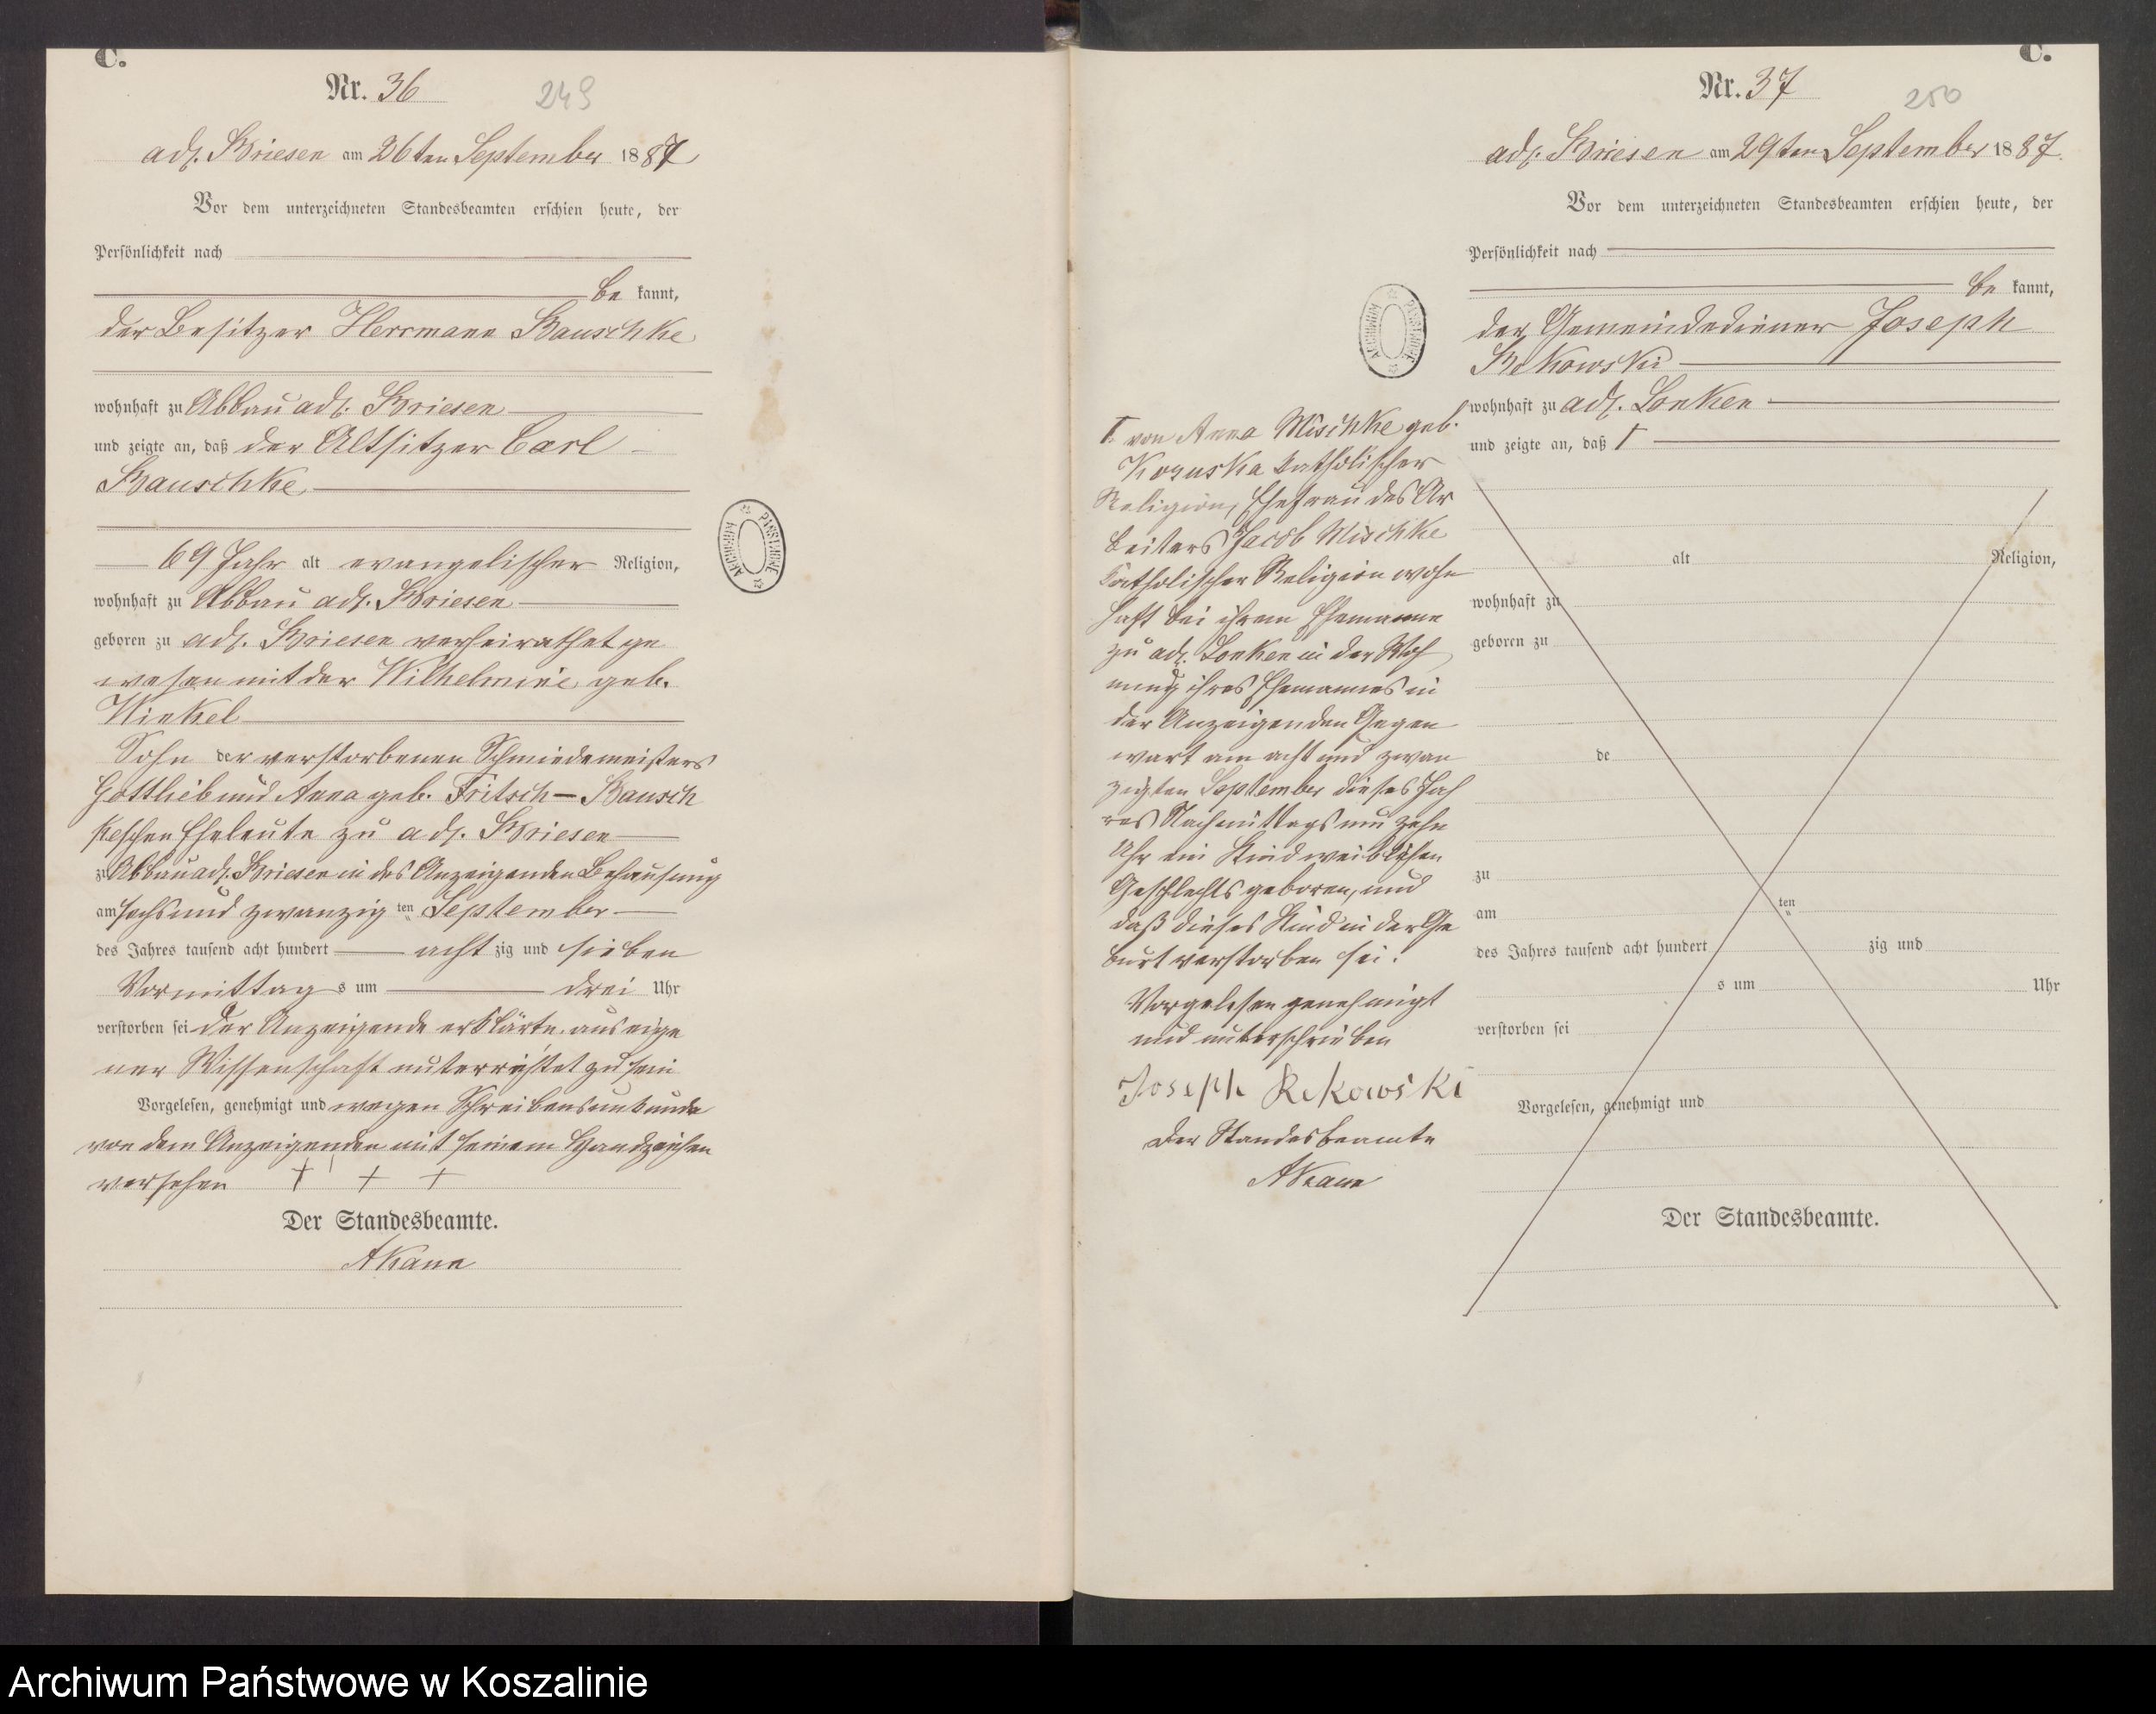 C.
Nr. 36
249
adl. Briesen am 26ten September 1887
Vor dem unterzeichneten Standesbeamten erschien heute, der
Persönlichkeit nach
be kannt,
der Besitzer Herrmann Bauschke
wohnhaft zu Abbau adl. Briesen
und zeigte an, daß der Altsitzer Carl
Bauschke
69 Jahr alt evangelischer Religion,
wohnhaft zu Abbau adl. Briesen
geboren zu adl. Briesen verheirathet ge
wesen mit der Wilhelmine geb.
Winkel
Sohn der verstorbenen Schmiedemeisters
Gottlieb und Anna geb. Fritsch – Bausch
keschen Eheleute zu adl. Briesen
zu Abbau adl. Briesen in des Anzeigenden Behausung
am sechsund zwanzig ten September
des Jahres tausend acht hundert acht zig und sieben
Vormittag s um drei Uhr
verstorben sei der Anzeigende erklärte, aus eige
ner Wissenschaft unterrichtet zu sein
Vorgelesen, genehmigt und wegen Schreibensunkunde
von dem Anzeigenden mit seinem Handzeichen
versehen + + +
Der Standesbeamte.
AKann
ARCHIWUM PAŃSTWOWE
C.
Nr. 37
250
adl. Briesen am 29ten September 1887.
Vor dem unterzeichneten Standesbeamten erschien heute, der
Persönlichkeit nach
be kannt,
der Gemeindediener Joseph
Rekowski
wohnhaft zu adl. Lonken
und zeigte an, daß T
alt Religion,
wohnhaft zu
geboren zu
de
zu
am ten
des Jahres tausend acht hundert zig und
s um Uhr
verstorben sei
Vorgelesen, genehmigt und
Der Standesbeamte.
ARCHIWUM PAŃSTWOWE
T. von Anna Mischke geb.
Kozuska katholischer
Religion, Ehefrau des Ar
beiters Jacob Mischke
katholischer Religion wohn
haft bei ihrem Ehemanne
zu adl. Lonken in der Woh
nung ihres Ehemannes in
der Anzeigenden Gegen
wart am acht und zwan
zigsten September dieses Jah
res Nachmittags um zehn
Uhr ein Kind weiblichen
Geschlechts geboren, und
daß dieses Kind in der Ge
burt verstorben sei.
Vorgelesen genehmigt
und unterschrieben
Joseph Rekowski
Der Standesbeamte
AKann
Archiwum Państwowe w Koszalinie